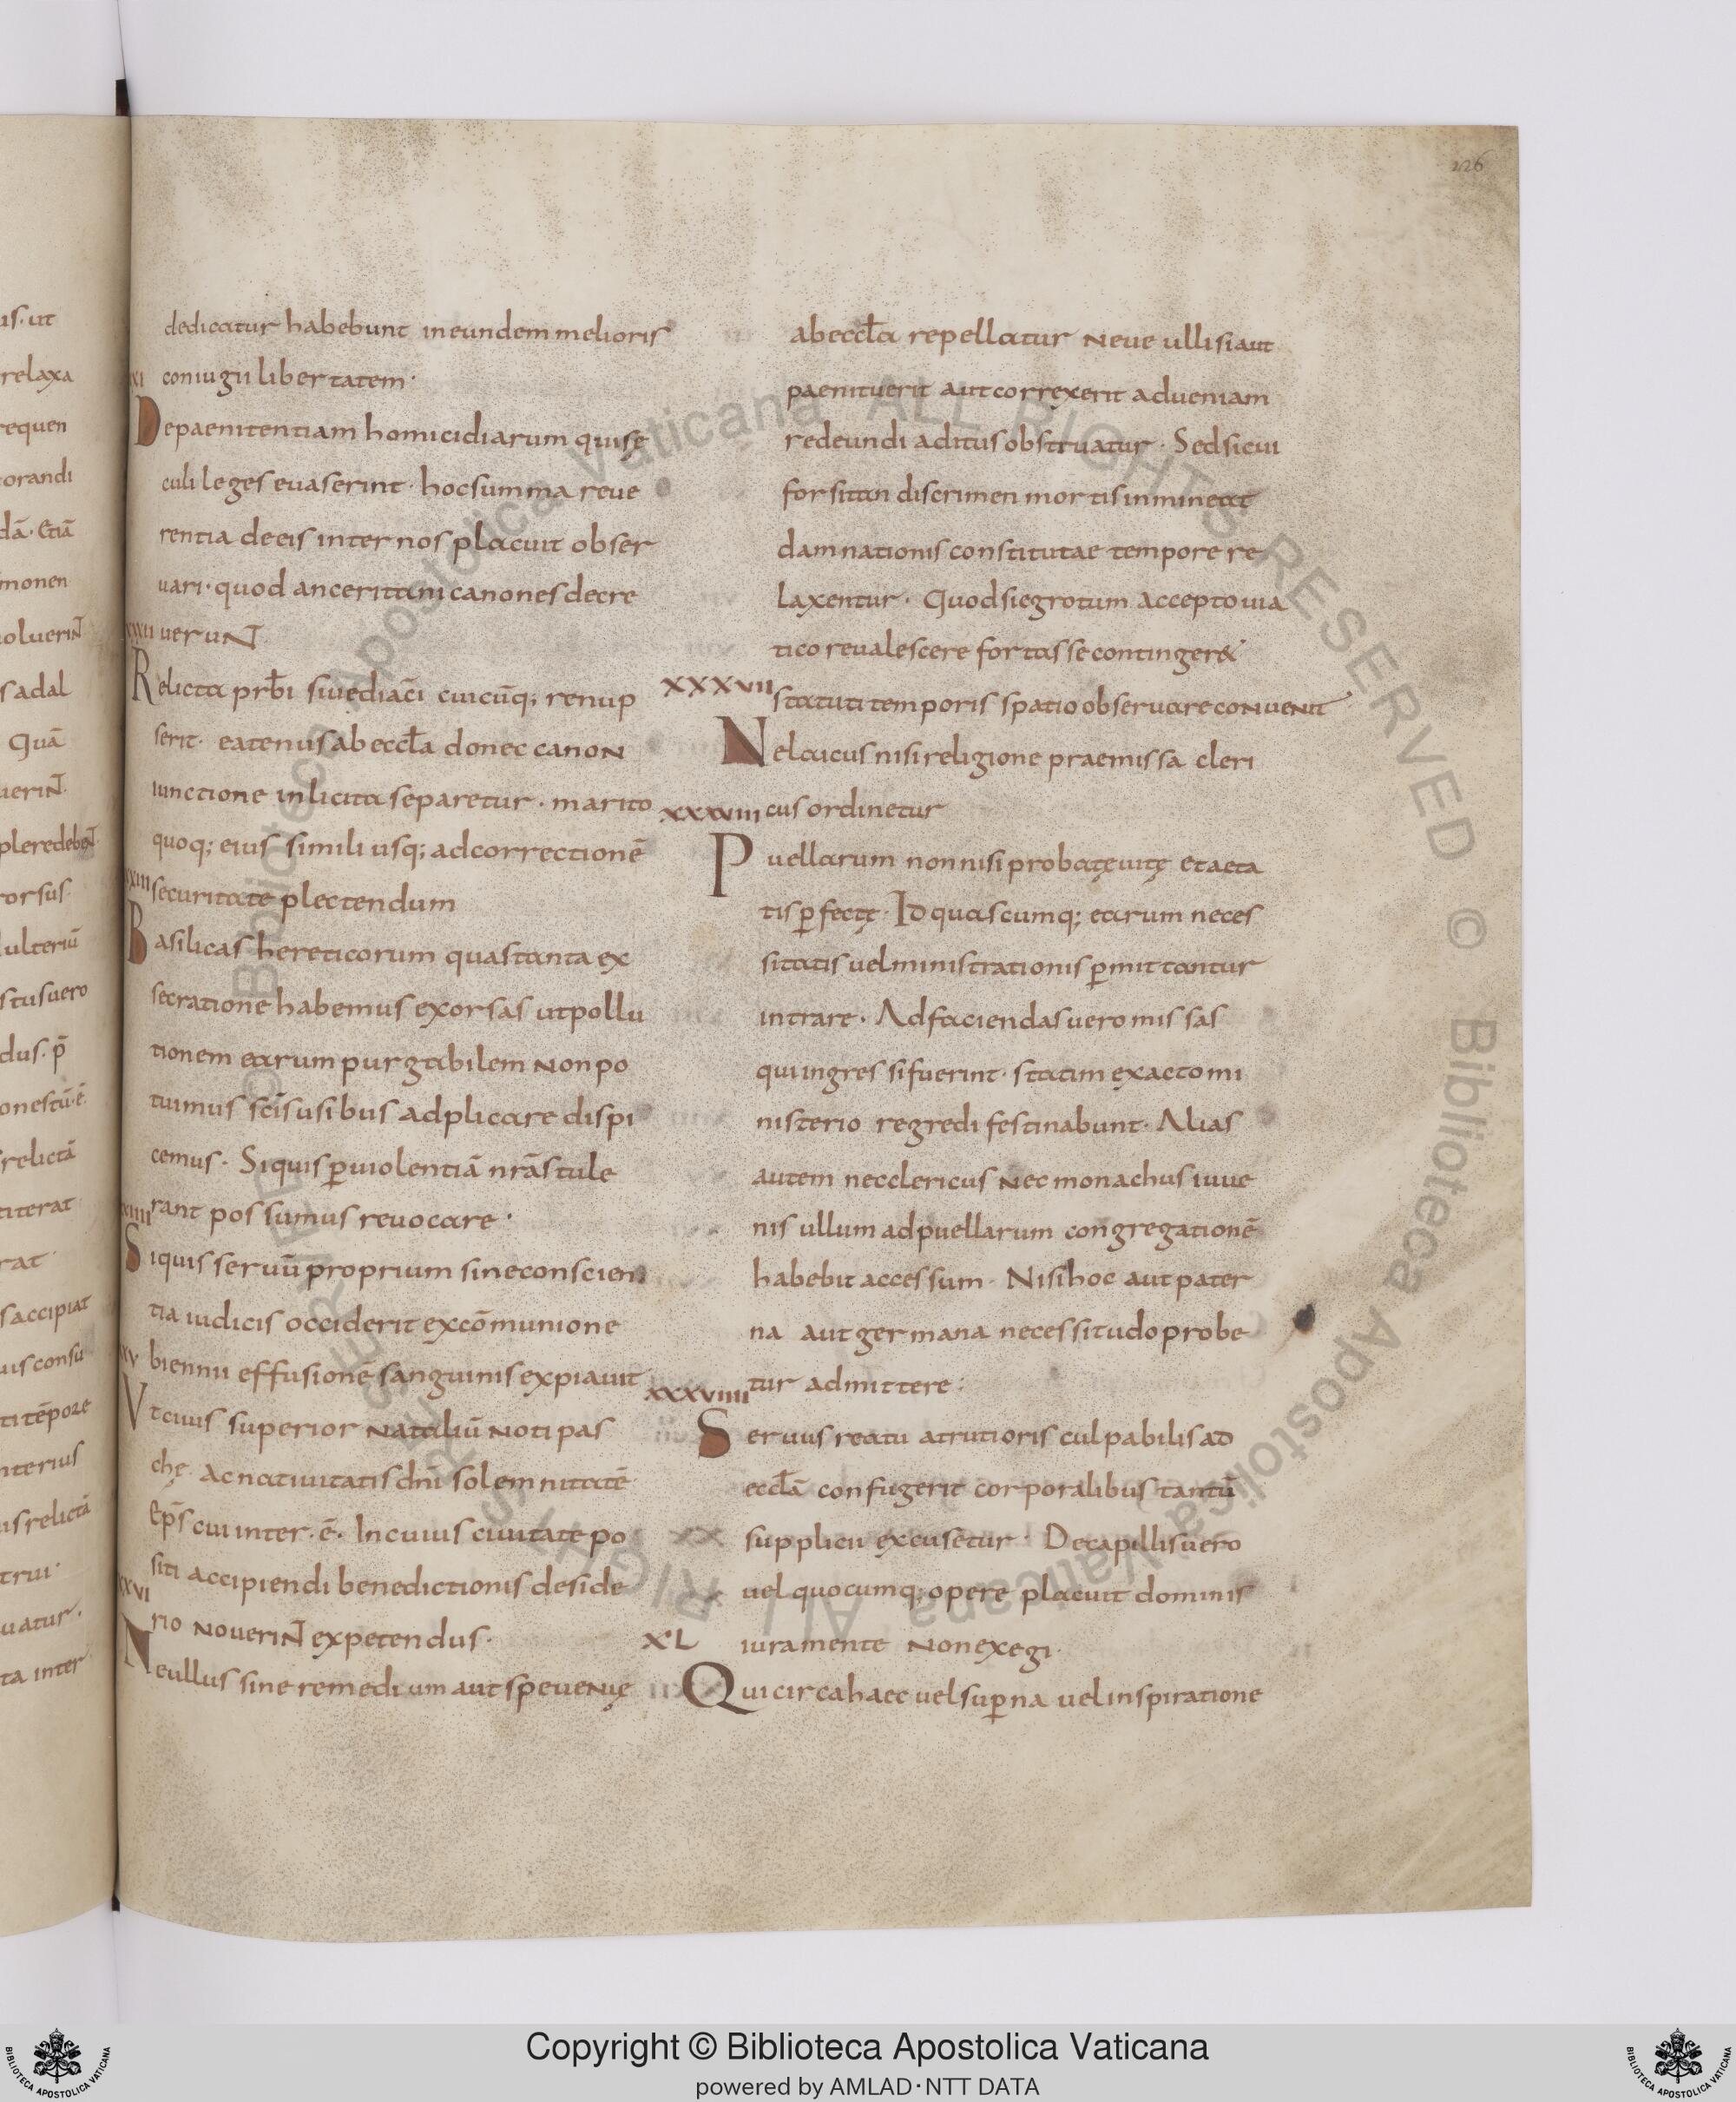 126
us· ut
relaxa
requen
orandi
dā· Etiā
monen
oluerin̄
s adal
Quā
uerin̄
pleredeben̄
rorsus·
ulteriū
stusuero
dus· p̄
onestū·ē·
relictā
titerat
rat·
saccipiat
uis consu
ti tēpore
nterius
us relictā
trui·
uatur·
ta inter
dedicatur habebunt in eundem melioris
XI coniugii libertatem·
Depaenitentiam homicidiarum qui sę
culi leges euaserint· hoc summa reue
rentia de eis inter nos placuit obser
uari· quod anceritani canones decre
XXXII uerunt
Relicta prb̄i siue diac̄i cuicūq; renup
serit· eatenus ab eccl̄a donec canon
iunctione inlicita separetur· marito
quoq; eius simili usq; ad correctionē
XXIII securitate plectendum
Basilicas hereticorum quas tanta ex
secratione habemus exorsas ut pollu
tionem earum purgabilem non po
tuimus sc̄is usibus adplicare dispi
cemus· Si quis p̄ uiolentiā nr̄ās tule
XIIII rant possumus reuocare·
Si quis seruū proprium sine conscien
tia iudicis occiderit excōmunione
XV biennii effusionē sanguinis expiauit
Ut cuius superior nataliū noti pas
chę· ac natiuitatis dn̄i solemnitatē
Ep̄s cui inter·ē· In cuius ciuitate po
siti accipiendi benedictionis deside
XXVI rio nouerin̄ expetendus·
Ne ullus sine remedium aut spe uenię
ab eccl̄a repellatur neue ulli si aut
paenituerit aut correxerit ad ueniam
redeundi aditus obstruatur· Sed si cui
forsitan discrimen mortis inmineat
damnationis constitutae tempore re
laxentur· Quod si egrotum accepto uia
tico reualescere fortasse contingeret
XXXVII statuti temporis spatio obseruare conuenit
Ne laicus nisi religione praemissa cleri
XXXVIII cus ordinetur
Puellarum non nisi probatę uitę et aeta
tis p̄fectę· Id quascumq; earum neces
sitatis uel ministrationis p̄mittantur
intrare· Ad faciendas uero missas
qui ingressi fuerint· statim exacto mi
nisterio regredi festinabunt· Alias
autem nec clericus nec monachus iuue
nis ullum ad puellarum congregationē
habebit accessum· Nisi hoc aut pater
na aut germana necessitudo probe
XXXVIIII tur admittere:
Seruus reatu atrutioris culpabilis ad
eccl̄ā confugerit corporalibus tantū
supplicii excusetur· De capillis uero
uel quocumq; opere placuit dominis
XL iuramente non exegi·
Qui circa haec uel sup̄na uel inspiratione
Biblioteca Apostolica Vaticana ALL RIGHTS RESERVED ©
Copyright © Biblioteca Apostolica Vaticana
powered by AMLAD·NTT DATA
BIBLIOTECA APOSTOLICA VATICANA
BIBLIOTECA APOSTOLICA VATICANA